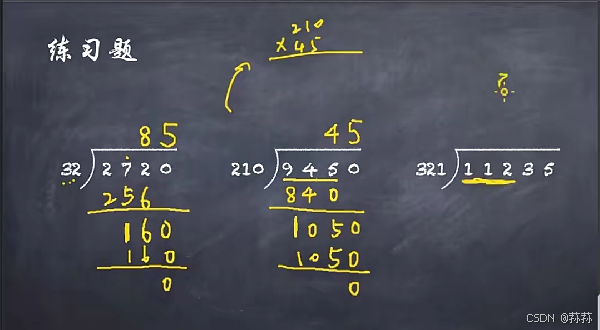 练习题
210
×45
85
32 2720
256
160
160
0
45
210 9450
840
1050
1050
0
?
321 11235
CSDN @菻菻